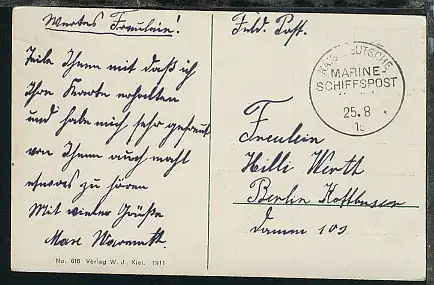 Wertes Fräulein!
Teile Ihnen mit daß ich
Ihre Karte erhalten
und habe mich sehr gefreut
von Ihnen auch mahl
etwas zu hören
Mit vieler Grüße
Max
No. 616 Verlag W. J. Kiel. 1911
Feld. Post.
KAIS. DEUTSCHE
MARINE-
SCHIFFSPOST
25.8
Freulein
Hilli Werth
Berlin Kottbuser
Damm 103